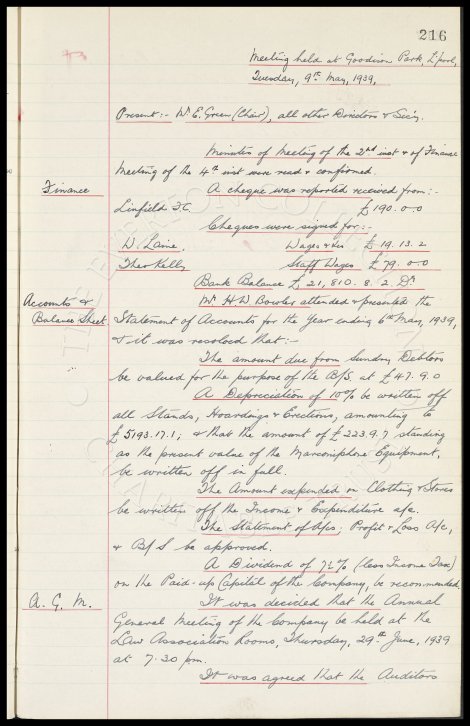 216
Meeting held at Goodison Park, L'pool,
Tuesday, 9th May, 1939,
Present:- Mr E. Green (Chair), all other Directors & Secy.
Minutes of Meeting of the 2nd inst & of Finance
Meeting of the 4th inst were read & confirmed.
Finance
A cheque was reported received from:-
Linfield F.C. £190.0.0
Cheques were signed for:-
W. Laine. Wages & Ex's £19.13.2
Theo Kelly Staff Wages £79.0.0
Bank Balance £21,810.8.2. Dr
Accounts &
Balance Sheet
Mr H.W. Bowler attended & presented the
Statement of Accounts for the Year ending 6th May, 1939,
& it was resolved that:-
The amount due from Sundry Debtors
be valued for the purpose of the B/S. at £47.9.0
A Depreciation of 10% be written off
all Stands, Hoardings & Erections, amounting to
£5193.17.1; & that the amount of £223.9.7 standing
as the present value of the Marconiphone Equipment,
be written off in full.
The Amount expended on Clothing & Stores
be written off the Income & Expenditure a/c.
The Statement of A/cs; Profit & Loss A/c,
& B/S be approved.
A Dividend of 7½% (less Income Tax)
on the Paid-up Capital of the Company, be recommended.
A.G.M.
It was decided that the Annual
General Meeting of the Company be held at the
Law Association Rooms, Thursday, 29th June, 1939
at 7.30 pm.
It was agreed that the Auditors